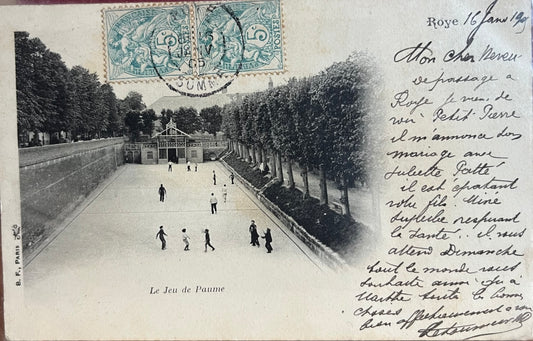 Roye 16 Janv 1905
SOMME
POSTES
Mon cher Neveu
De passage à
Roye je viens de
voir Petit Pierre
il m'annonce son
mariage avec
Juliette
il est épatant
votre fils. Mine
superbe respirant
la santé. il vous
attend Dimanche
tout le monde vous
souhaite ainsi qu'à
Marthe toutes les bonnes
choses affectueusement à vous
bien
Le Jeu de Paume
B. F., PARIS